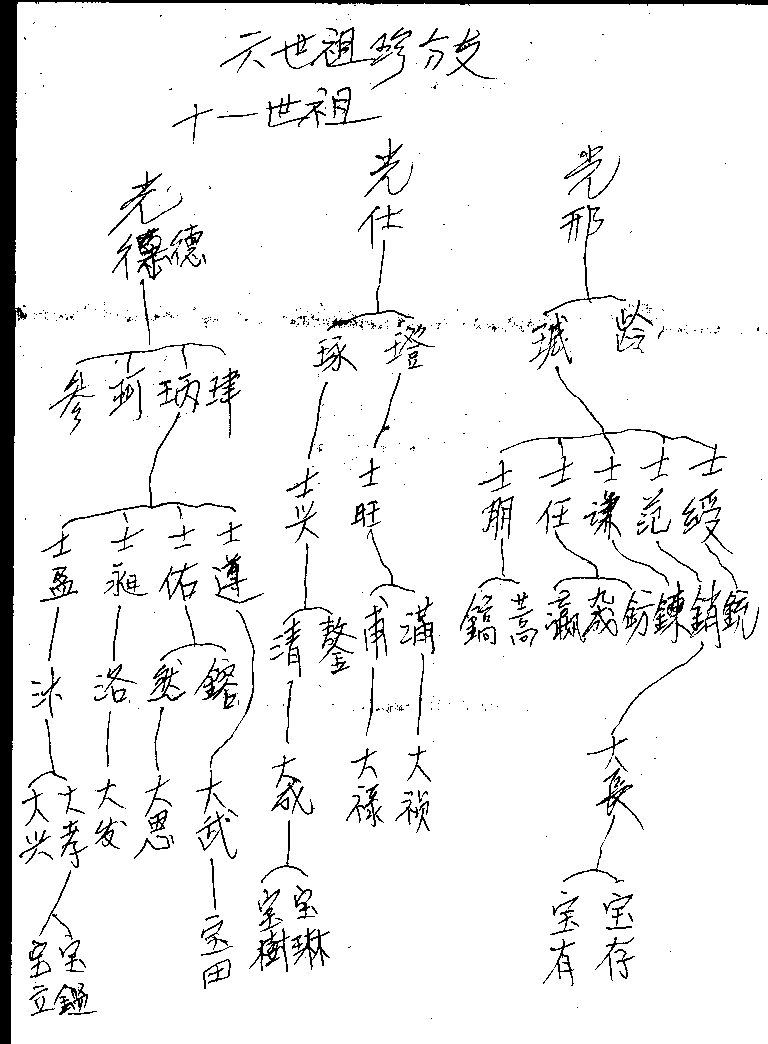 六世祖珍分支
十一世祖
光德 光仕 光邢
參 珂 珦 瑋 琢 璒 珹 龄
士盈 士昶 士佑 士遵 士兴 士旺 士朋 士任 士谦 士范 士綬
沐 洛 鎔 清 鏊 甫 滿 鎬 蒿 瀛 鈁 鍊 銷 銃
大兴 大孝 大发 大恩 大武 大成 大禄 大祯 大長
宝立 宝鍚 宝田 宝樹 宝琳 宝有 宝存